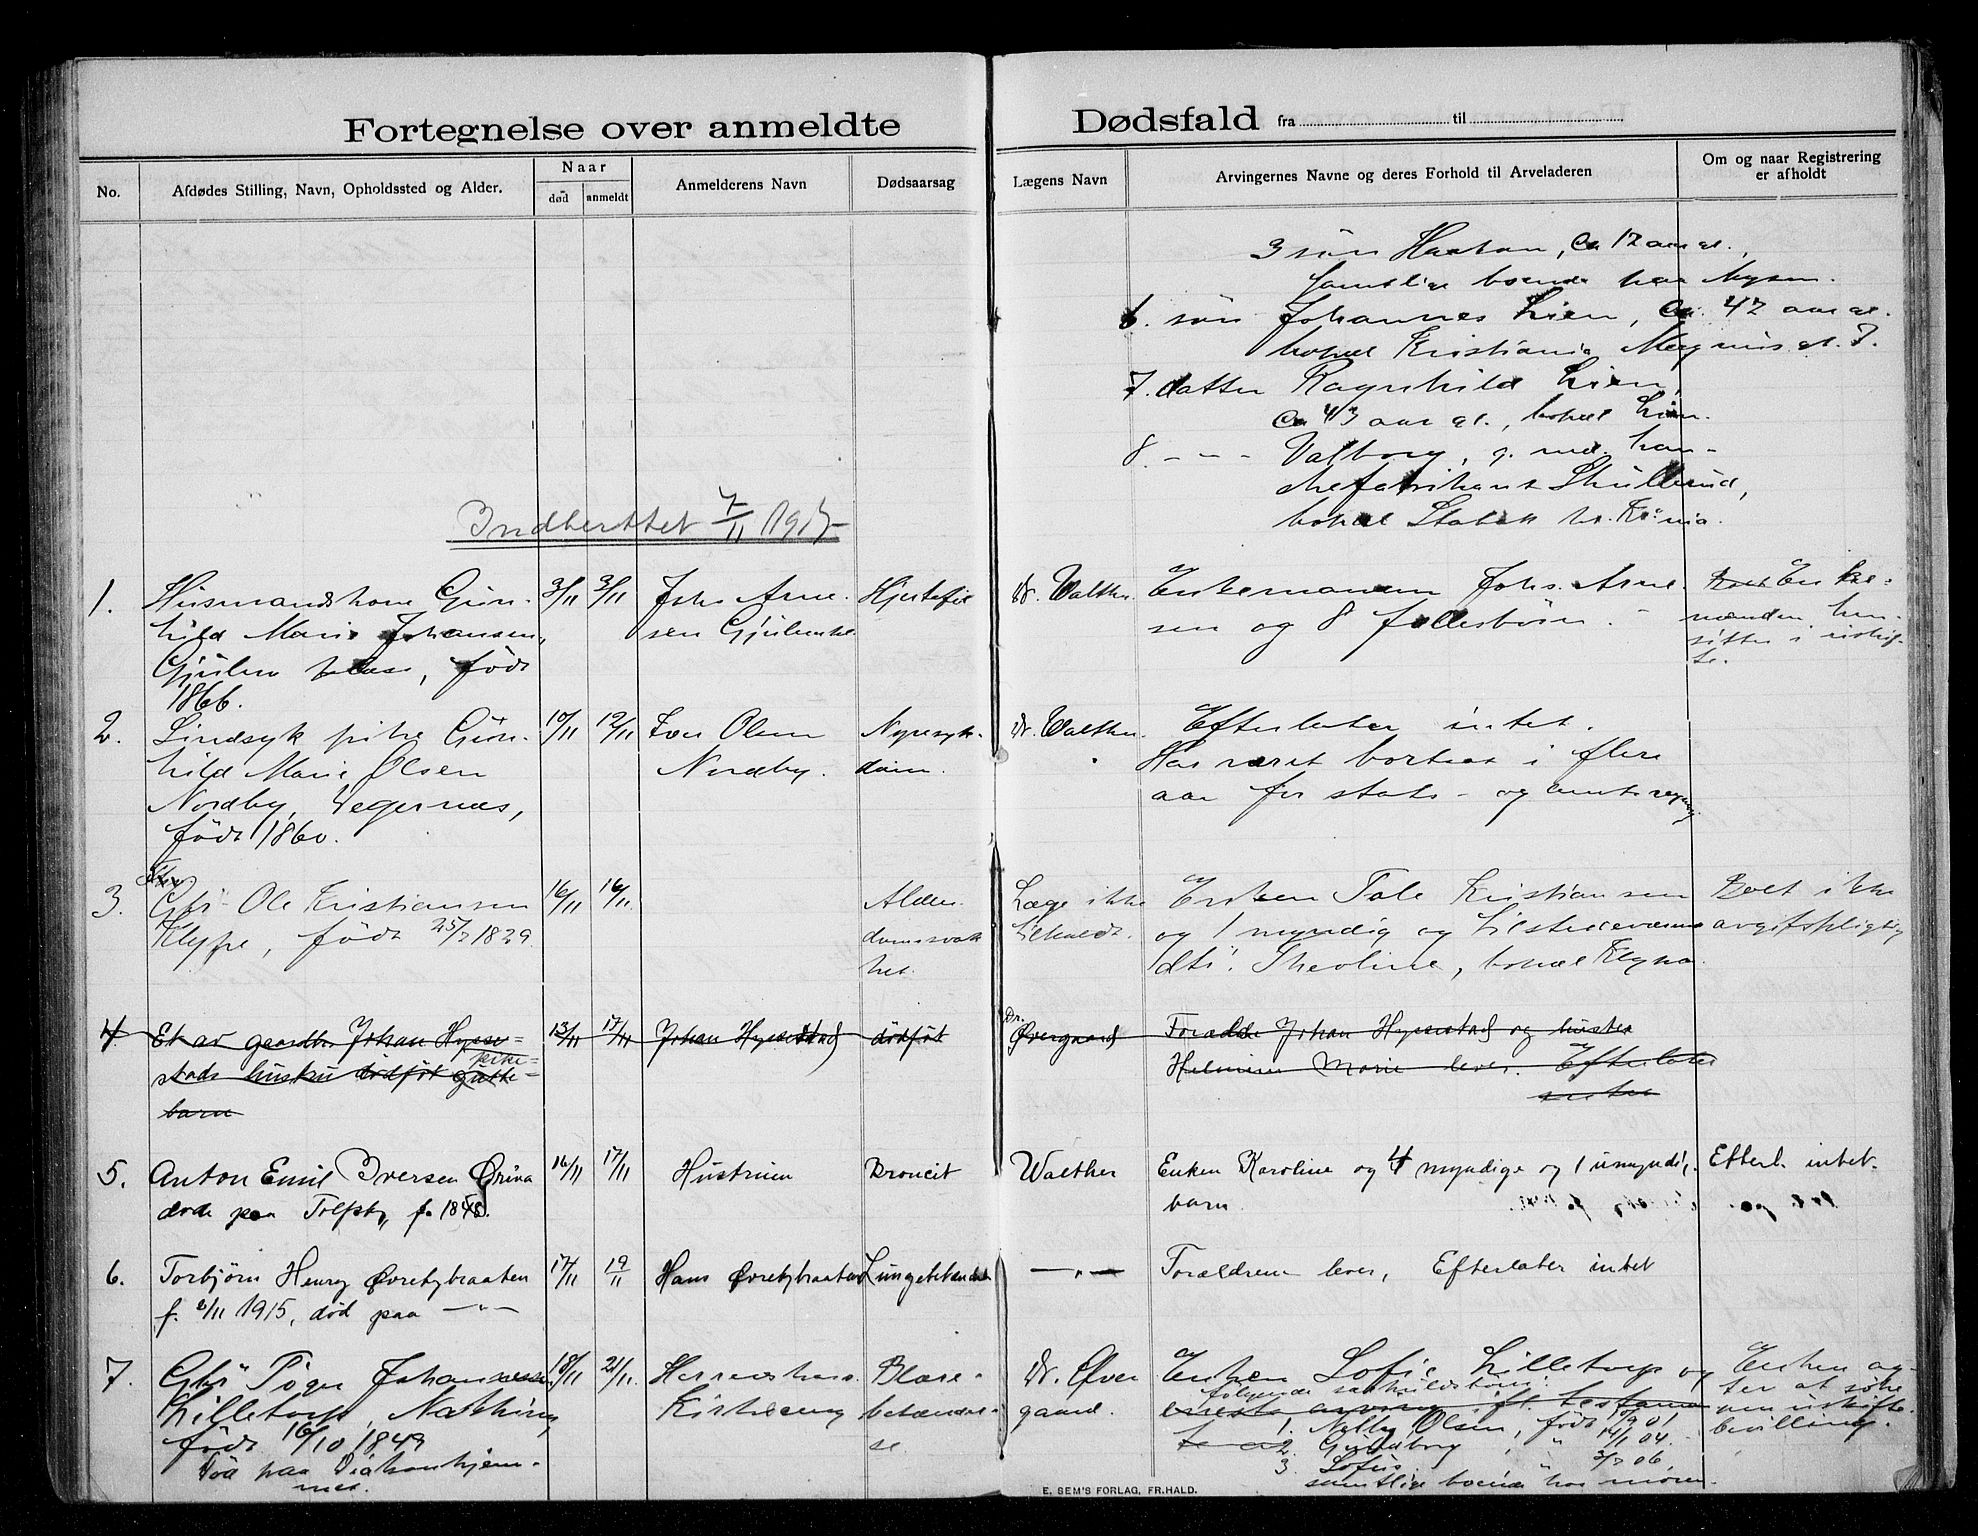 Fortegnelse over anmeldte
Dødsfald fra til
No.
Afdødes Stilling, Navn, Opholdssted og Alder.
Naar
død
anmeldt
Anmelderens Navn
Dødsaarsag
Lægens Navn
Arvingernes Navne og deres Forhold til Arveladeren
Om og naar Registrering
er afholdt
3 søn Haakon, ca 12 aar gl.,
samtlige boende paa Mysen.
6. søn Johannes Lien, ca. 42 aar gl.
bopæl Kristiania Magnus gt. 7.
7. datter Ragnhild Lien,
ca 43 aar gl., bopæl Lien.
8. - - - Valborg, g. md. han-
skefabrikant Skullerud,
bopæl Stabæk pr. Kr.nia.
Indberettet 7/11 1915
1.
Husmandskone Gun-
hild Marie Johansen,
Gjulem plass, født
1866.
3/11
3/11
Johs Arne-
sen Gjulem
Hjertefeil
Dr. Walther
Enkemanden Johs. Arne-
sen og 8 fællesbørn. -
Enke-
manden hen-
sitter i uskif-
te.
2.
Sindsyk pike Gun-
hild Marie Olsen
Nordby, Degernæs,
født 1860.
10/11
12/11
Iver Olsen
Nordby.
Nyresyk-
dom.
Dr. Walther
Efterlater intet.
Har været bortsat i flere
aar for stats- og amts regning
3.
Gbr Ole Kristiansen
Klype, født 25/7 1829
16/11
16/11.
Alder-
domssvak-
het.
Læge ikke
tilkaldt.
Enken Tale Kristiansen
og 1 myndig og tilstedeværende
dtr. Theoline, bopæl Klypa.
Boet ikke
avgiftspligtig
4.
Et av gaardbr. Johan Hysse-
stads hustru dødfødt gutte- pike-
barn
13/11
17/11
Johan Hyssestad
dødfødt
Dr.
Øvergaard
Forældre Johan Hyssestad og hustru
Helmine Marie lever. Efterlater
intet
5.
Anton Emil Iversen Gruva
død paa Tolfsby, f. 1848.
16/11
17/11
Hustruen
Broncit
Walther
Enken Karoline og 4 myndige og 1 umyndig
barn.
Efterl. intet.
6.
Torbjørn Henry Øvrebybraaten
f. 2/11 1915, død paa —"—
17/11
19/11
Hans Øvrebybraaten
Lungebetændelse
—"—
Forældrene lever, Efterlater intet
7.
Gbr Tøger Johannessen
Lilletorp, Nakkim,
født 16/10 1849
Død paa Diakonhjem-
met.
18/11
21/11.
Blære-
betændel-
se.
Dr. Øver-
gaard.
Enken Sofie Lilletorp og
følgende
eneste arving ifl. testamen-
te
1. Nelly Olsen, født 10/9 01
2. Guldborg " " 14/1 04.
3. Sofus 3/7 06,
samtlige boende hos moren.
Enken ag-
ter at søke
om uskifte-
bevilling.
E. SEM'S FORLAG, FR.HALD.